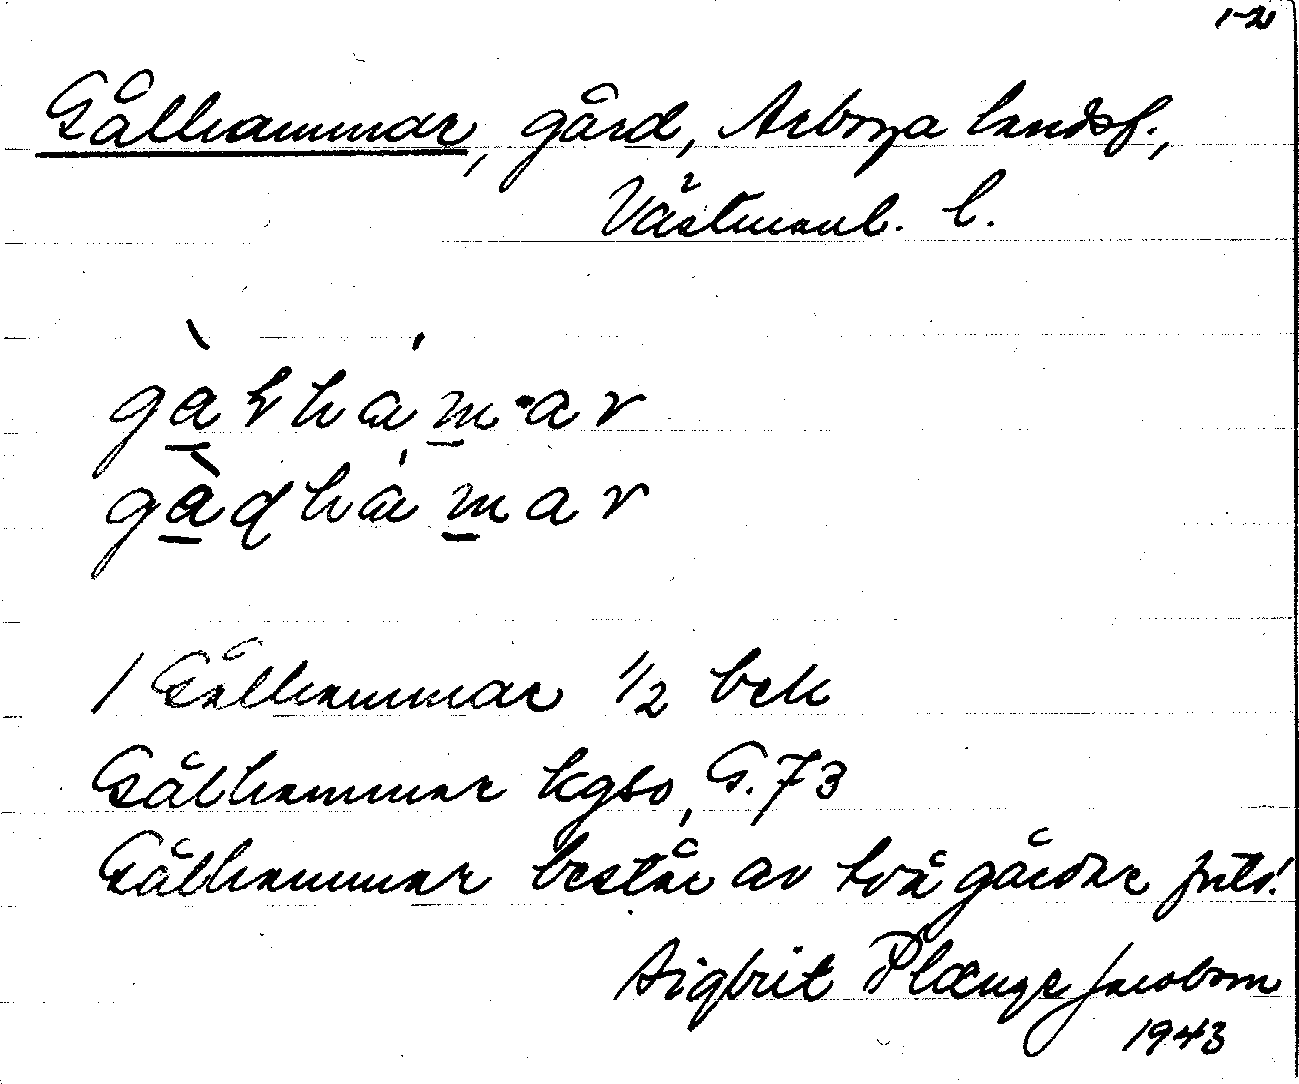 1-2
Gålhammar, gård, Arboga landsf.,
Västmanl. l.
gàlhámar
gàdhámar
1 Gålhammar 1/2 bek
Gålhammar kgbo, G. 73
Gålhammar består av två gårdar
Sigbrit Plænge Jacobson
1943